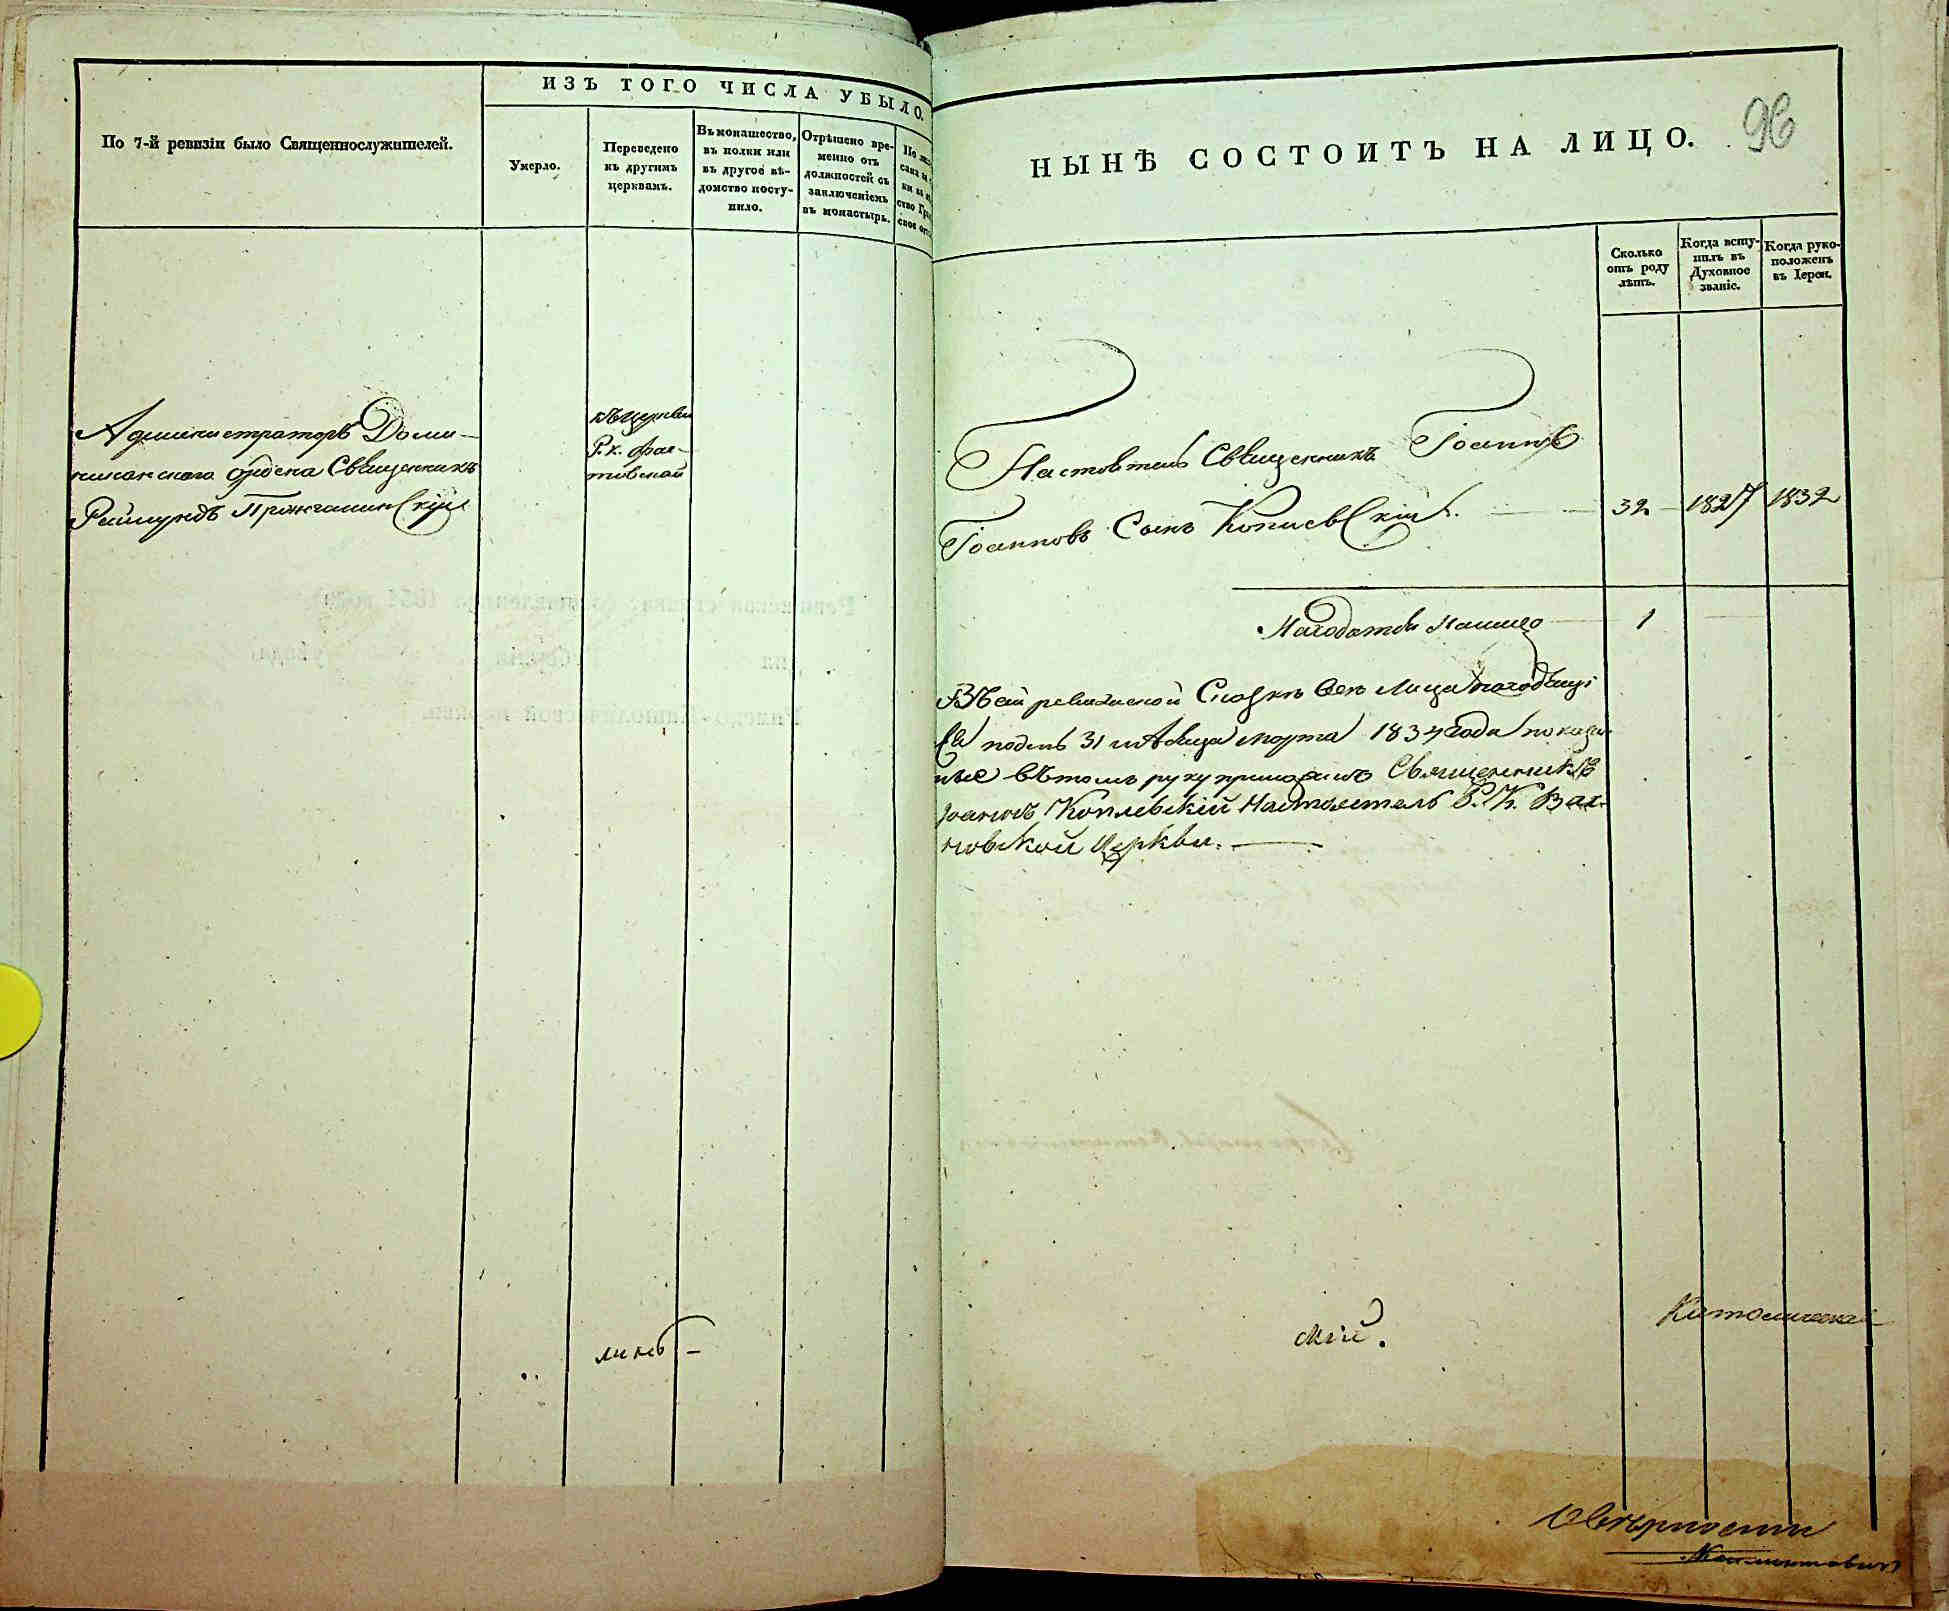 По 7-й ревизіи было Священнослужителей.
ИЗЪ ТОГО ЧИСЛА УБЫЛО.
Умерло.
Переведено
къ другимъ
церквамъ.
Въ монашество,
въ полки или
въ другое вѣ-
домство посту-
пило.
Отрѣшено вре-
менно отъ
должностей съ
заключеніемъ
въ монастырь.
Администраторъ Доми-
никанскаго ордена Священникъ
Раймундъ
къ церкви
Р. к. Фас-
товской
НЫНѢ СОСТОИТЪ НА ЛИЦО.
96
Сколько
отъ роду
лѣтъ.
Когда всту-
пилъ въ
Духовное
званіе.
Когда руко-
положенъ
въ Іереи.
Настоятель Священникъ Іоаннъ
Іоанновъ Сынъ Копиевскій.
32 1827 1832
1
В сей ревизской Сказкѣ все Лица находящі
ся по день 31 мѣсяца марта 1834 года показан
ные въ томъ руку приложилъ Священникъ
Іоаннъ Копиевскій Настоятель Р. К. Вах-
новской Церкви.
скій.
Католической